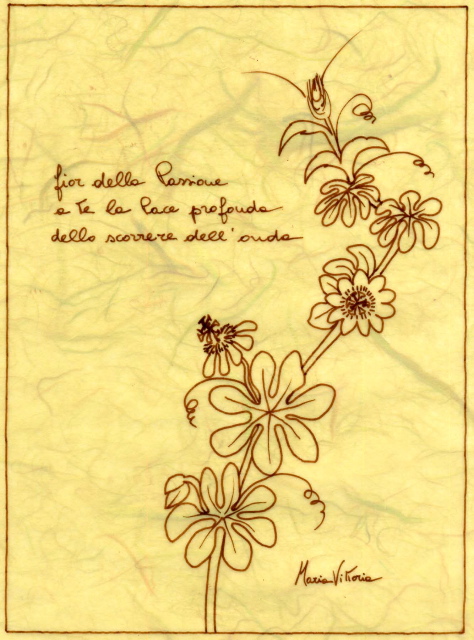 fior della Passione
a Te la Pace profonda
dello scorrere dell'onda
Maria Vittoria